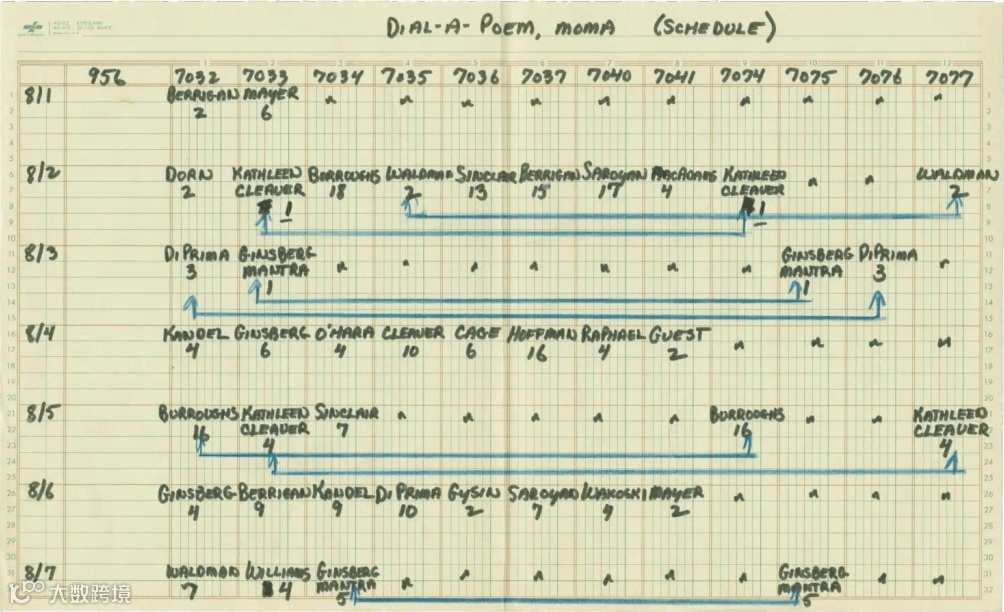 DIAL-A-POEM, MOMA (SCHEDULE)
956 7032 7033 7034 7035 7036 7037 7040 7041 7074 7075 7076 7077
8/1 BERRIGAN MAYER
2 6
8/2 DORN KATHLEEN CLEAVER BURROUGHS WALDMAN SINCLAIR BERRIGAN SAROYAN MACADAMS KATHLEEN CLEAVER WALDMAN
2 1 18 2 13 15 17 4 1 2
8/3 DIPRIMA GINSBERG MANTRA GINSBERG MANTRA DIPRIMA
3 1 1 3
8/4 KANDEL GINSBERG O'HARA CLEAVER CAGE HOFFMAN RAPHAEL GUEST
4 6 4 10 6 16 4 2
8/5 BURROUGHS KATHLEEN CLEAVER SINCLAIR BURROUGHS KATHLEEN CLEAVER
16 4 7 16 4
8/6 GINSBERG BERRIGAN KANDEL DI PRIMA GYSIN SAROYAN WAKOSKI MAYER
4 9 9 10 2 7 4 2
8/7 WALDMAN WILLIAMS GINSBERG MANTRA GINSBERG MANTRA
7 4 5 5
大数跨境